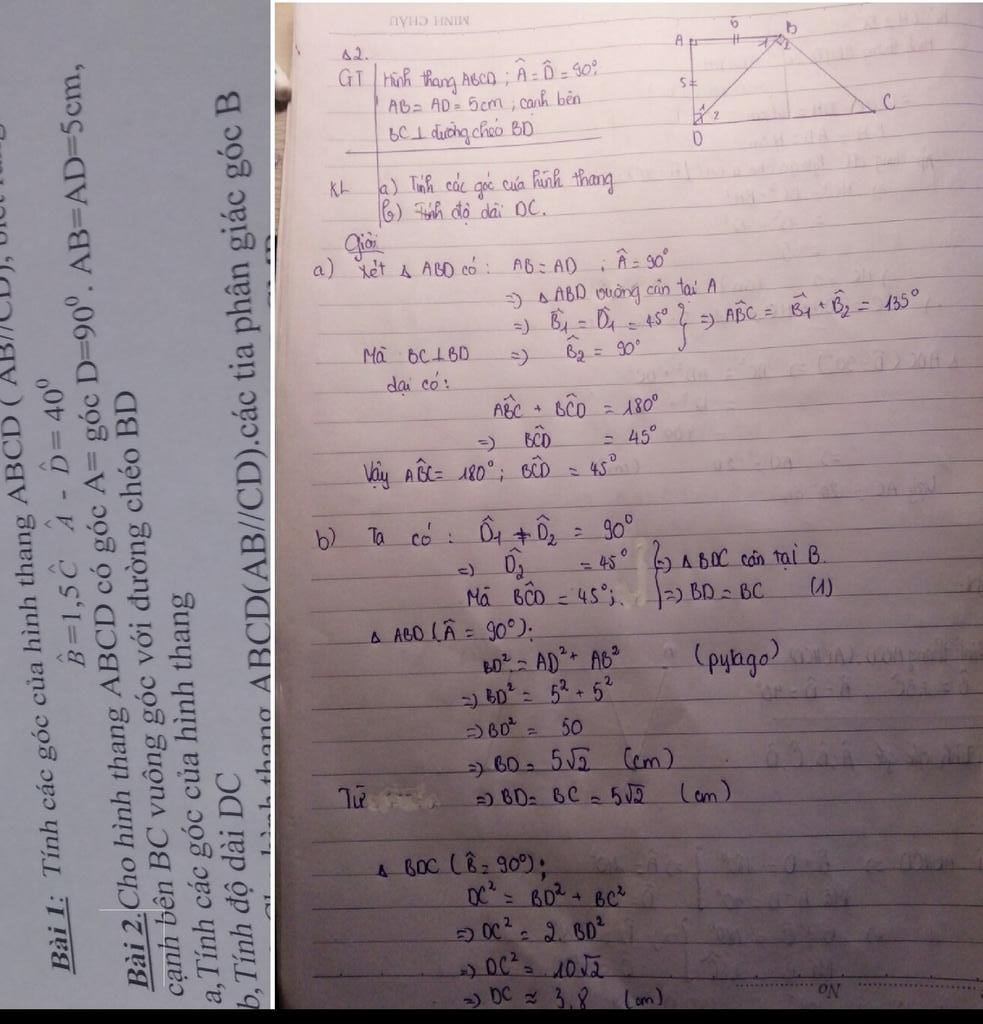 Bài 1: Tính các góc của hình thang ABCD ( AB//CD),
B̂ =1,5Ĉ Â - D̂ = 40⁰
Bài 2. Cho hình thang ABCD có góc A= góc D=90⁰. AB=AD=5cm,
cạnh bên BC vuông góc với đường chéo BD
a, Tính các góc của hình thang
b, Tính độ dài DC
ABCD(AB//CD).các tia phân giác góc B
MINH CHÂU
Δ2.
GT Hình thang ABCD ; Â = D̂ = 90⁰;
AB = AD = 5cm ; cạnh bên
BC ⊥ đường chéo BD
KL a) Tính các góc của hình thang
b) Tính độ dài DC.
A 5 B
1 2
5
1 2
D C
Giải
a) Xét Δ ABD có: AB = AD ; Â = 90⁰
=> Δ ABD vuông cân tại A
=> B̂₁ = D̂₁ = 45⁰ } => AB̂C = B̂₁ + B̂₂ = 135⁰
Mà BC⊥BD => B̂₂ = 90⁰
lại có:
AB̂C + BĈD = 180⁰
=> BĈD = 45⁰
Vậy AB̂C = 180⁰ ; BĈD = 45⁰
b) Ta có : D̂₁ + D̂₂ = 90⁰
=> D̂₂ = 45⁰ } => Δ BDC cân tại B.
Mà BĈD = 45⁰; => BD = BC (1)
Δ ABD (Â = 90⁰):
BD² = AD² + AB² (pytago)
=> BD² = 5² + 5²
=> BD² = 50
=> BD = 5√2 (cm)
Từ => BD = BC = 5√2 (cm)
Δ BDC (B̂ = 90⁰);
DC² = BD² + BC²
=> DC² = 2. BD²
=> DC² = 10√2
=> DC ≈ 3,8 (cm)
No